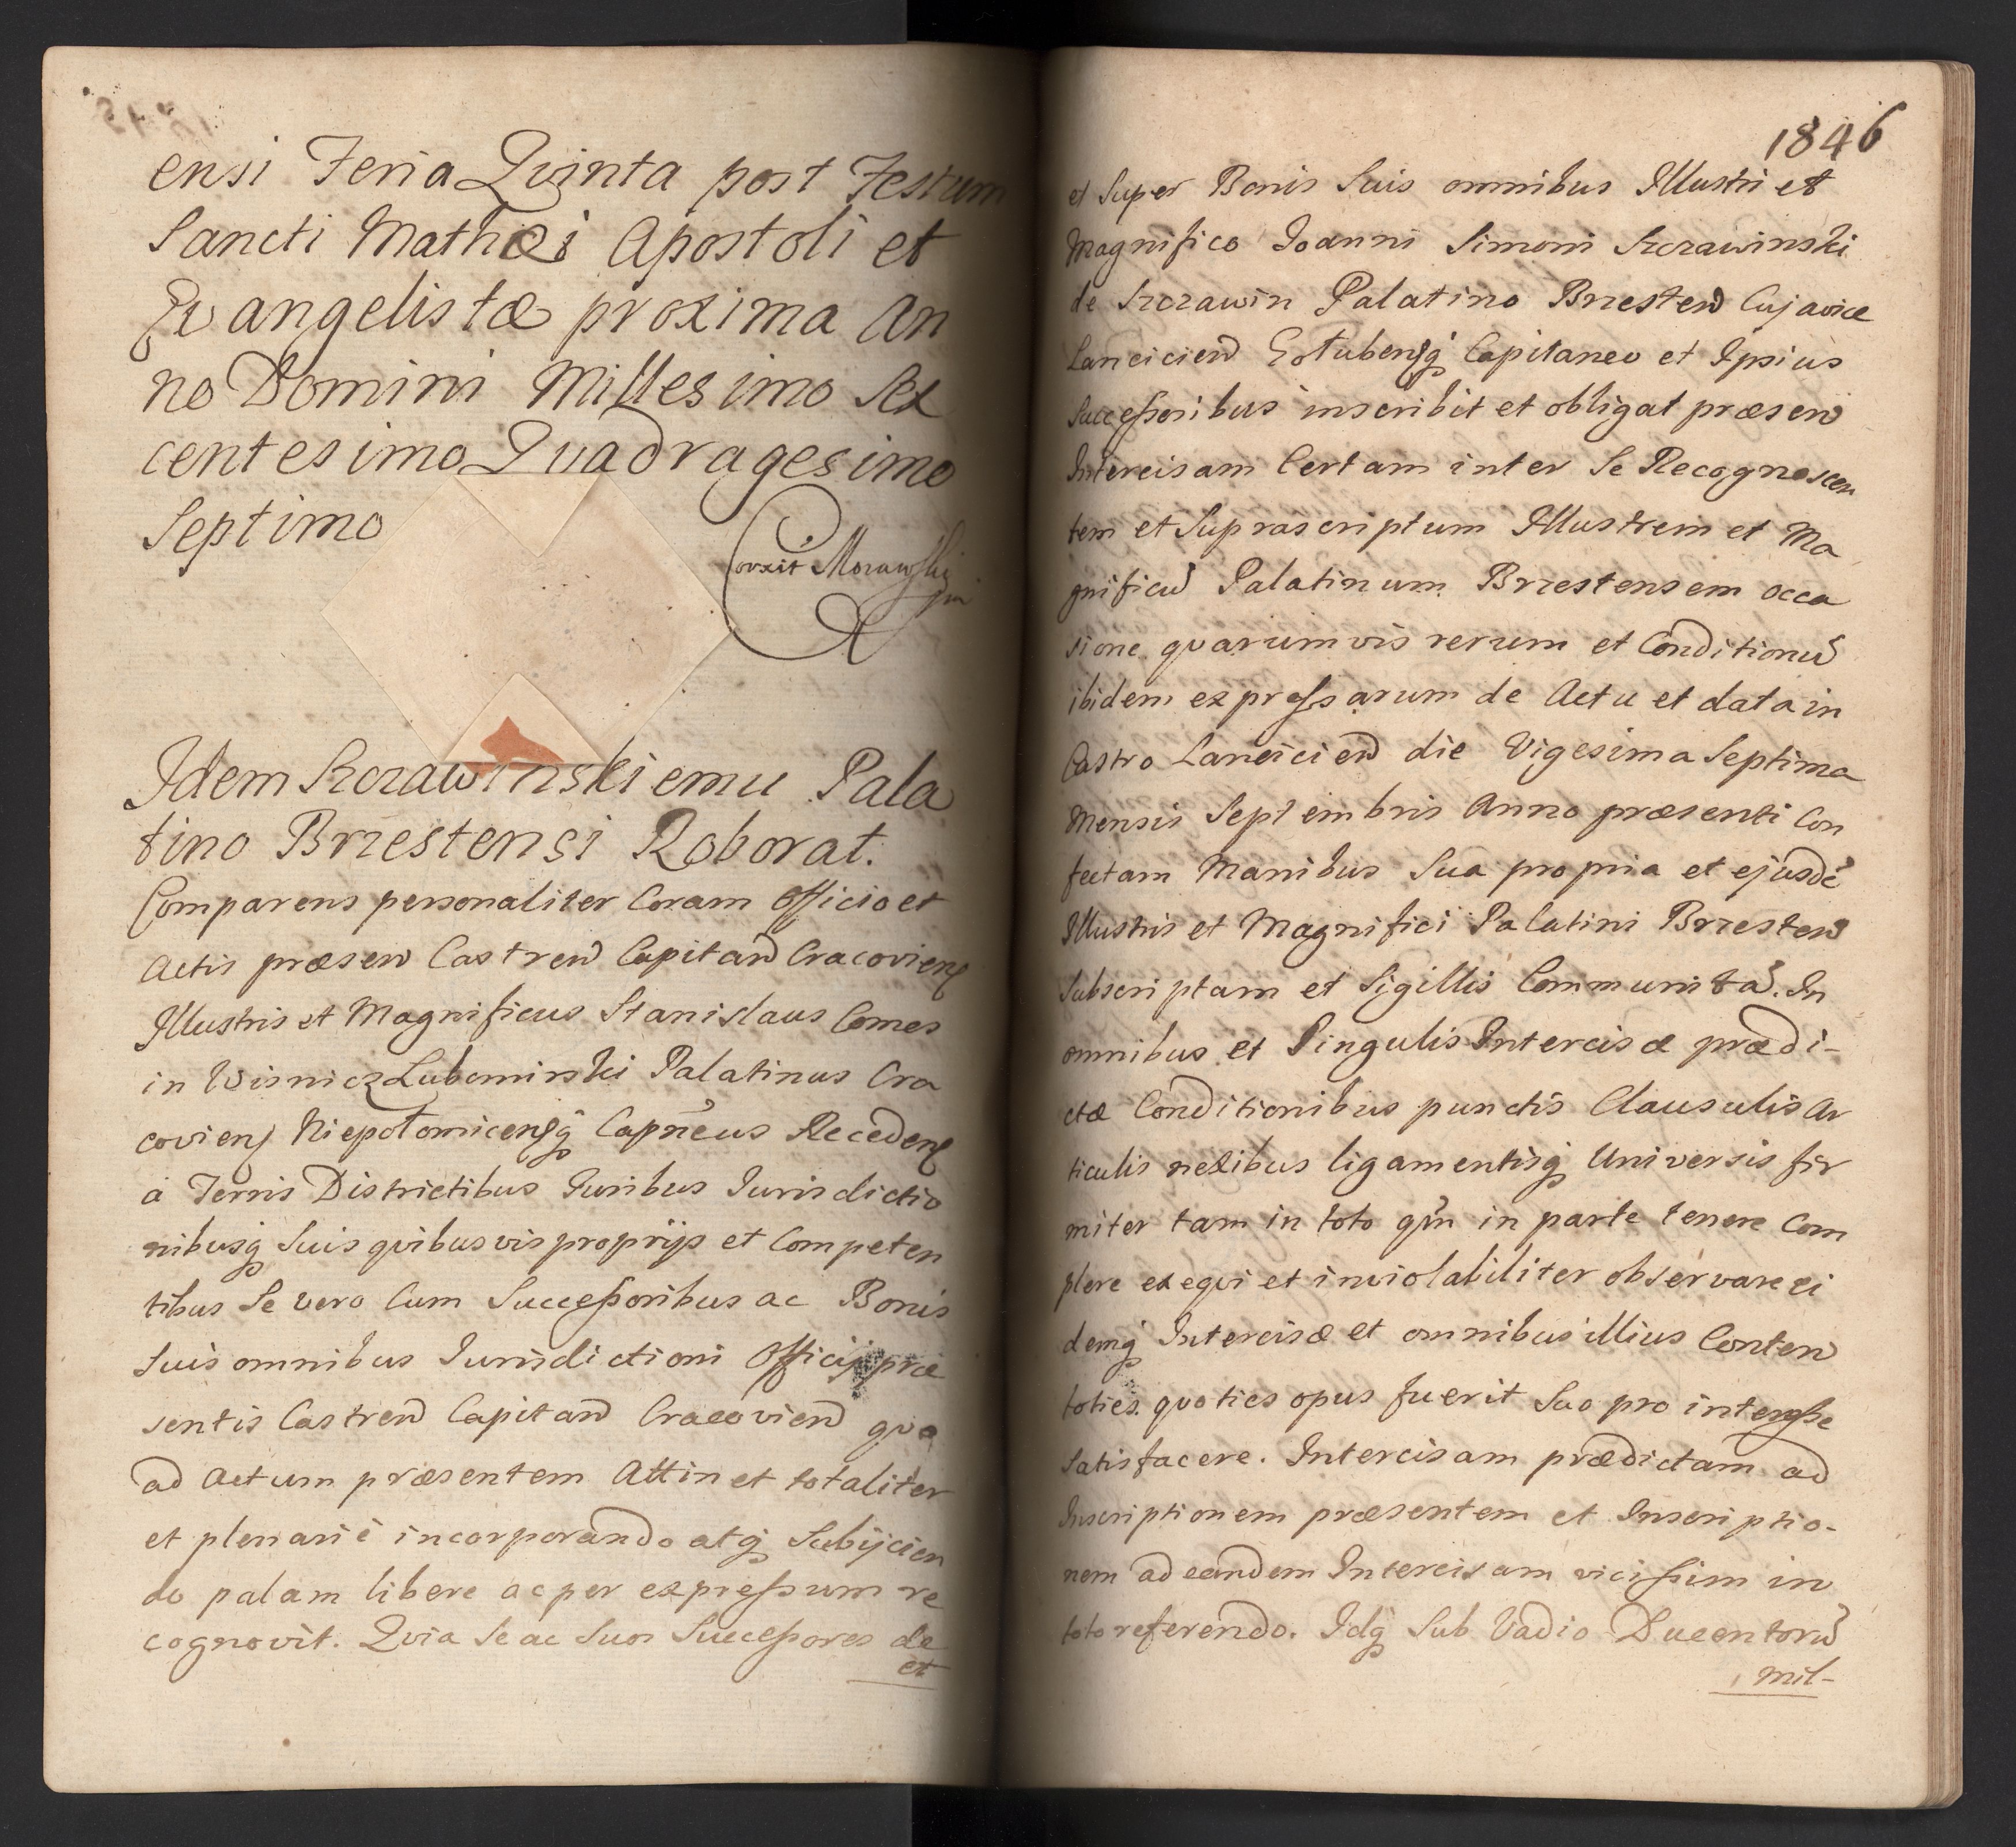 ensi Feria Qvinta post Festum
Sancti Mathæi Apostoli et
Evangelistæ proxima An
no Domini Millesimo Sex
centesimo Qvadragesimo
Septimo
Corrxit Morawski
Idem Szczawinskiemu Pala
tino Brzestensi Roborat.
Comparens personaliter Coram Officio et
Actis præsen Castren Capitan Cracovien
Illustris et Magnificus Stanislaus Comes
in Wisnicz Lubomirski Palatinus Cra
covien Niepołomicensq Capneus Receden
a Terris Districtibus Iuribus Iurisdictio
nibusq Suis qvibusvis proprijs et Competen
tibus Se vero Cum Successoribus ac Bonis
Suis omnibus Iurisdictioni Officij præ
sentis Castren Capitan Cracovien qvo
ad Actum præsentem Attinet totaliter
et plenarie incorporando atq Subijcien
do palam libere ac per expressum re
cognovit. Qvia Se ac Suos Successores de
et
1846
et Super Bonis Suis omnibus Illustri et
Magnifico Joanni Simoni Szczawinski
de Szczawin Palatino Brzesten Cujaviæ
Lancicien Gołubensq Capitaneo et Ipsius
Successoribus inscribit et obligat præsen
Intercisam Certam inter Se Recognoscen
tem et Suprascriptum Illustrem et Ma
gnificu Palatinum Brzestensem occa
sione qvarumvis rerum et Conditionu
ibidem expressarum de Actu et data in
Castro Lancicien die Vigesima Septima
Mensis Septembris Anno præsenti Con
fectam Manibus Sua propria et ejusde
Illustris et Magnifici Palatini Brzesten
Subscriptam et Sigillis Communita. In
omnibus et Singulis Intercisæ prædi-
ctæ Conditionibus punctis Clausulis Ar
ticulis nexibus ligamentisq Universis fir
miter tam in toto qm in parte tenere Com
plere exeqvi et inviolabiliter observare ei
demq Intercisæ et omnibus illius Conten
toties qvoties opus fuerit Suo pro interesse
Satisfacere. Intercisam prædictam ad
Inscriptionem præsentem et Inscriptio-
nem ad eandem Intercisam vicissim in
toto referendo. Idq Sub Vadio Ducentoru
mil-